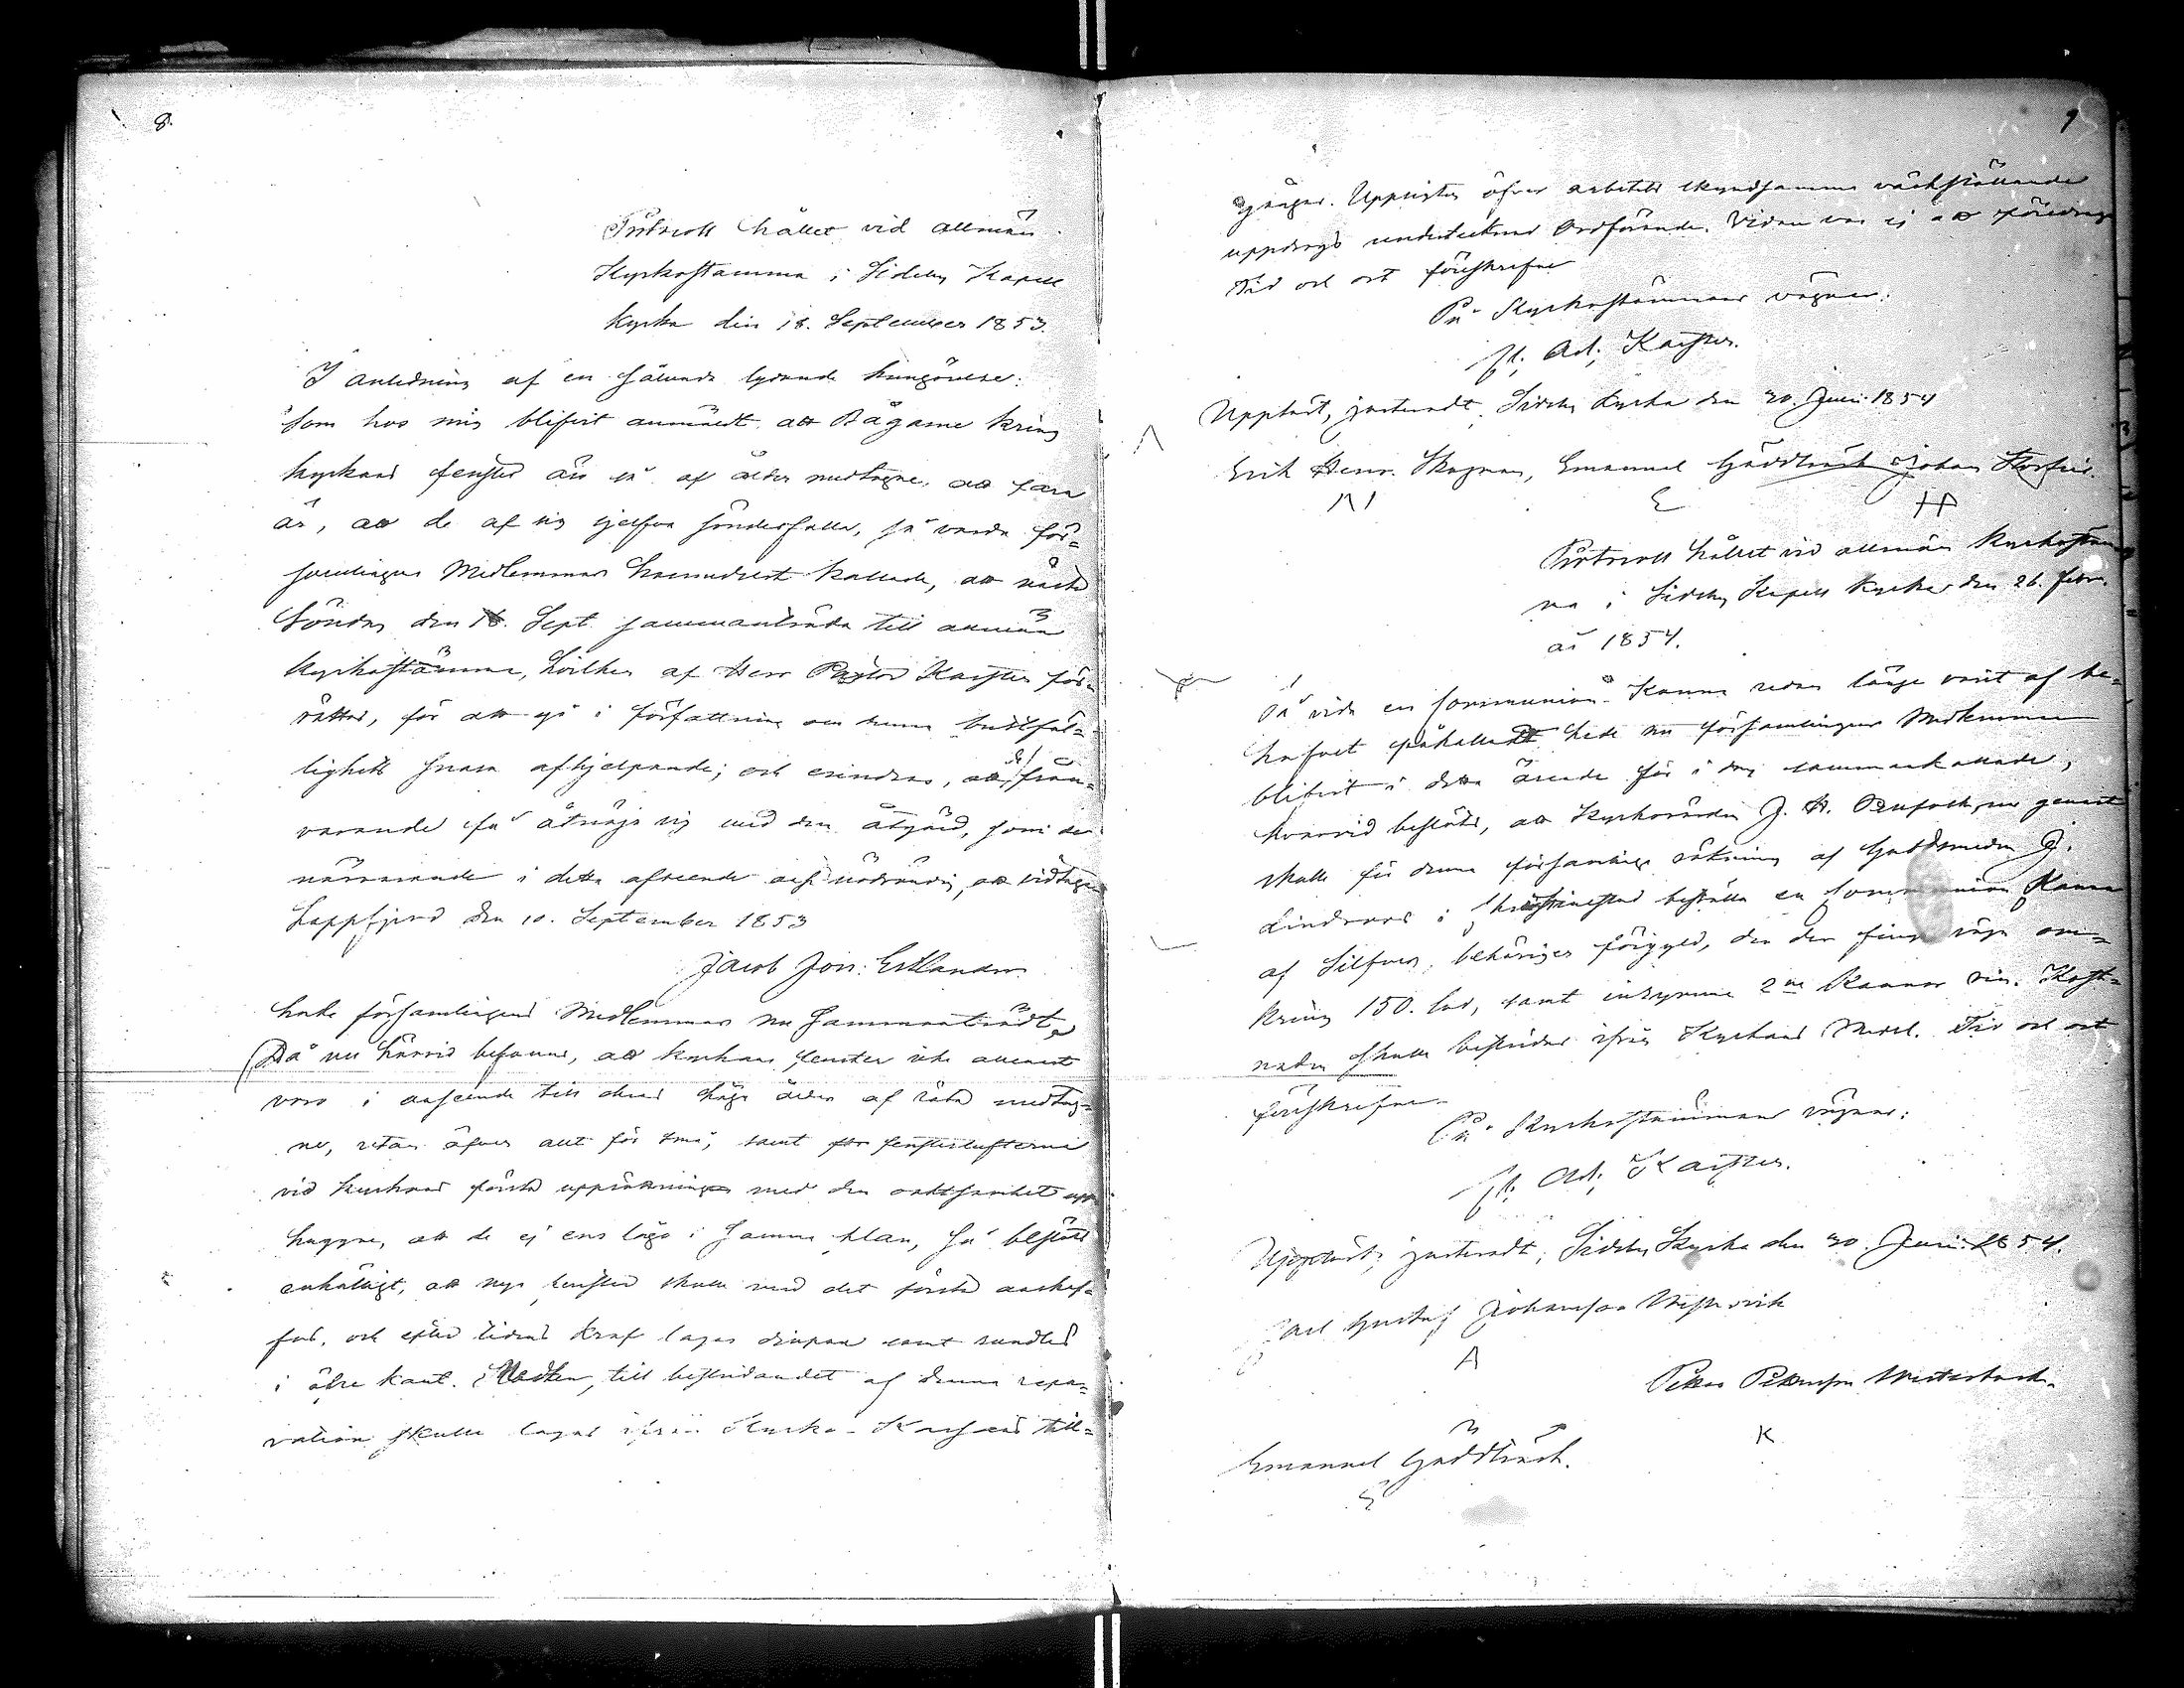 8.
Protocoll hållet vid allmän
Kyrkostämma i Sideby Kapell
kyrka den 18. September 1853.
I anledning af en sålunda lydande kungörelse:
"Som hos mig blifvit anmäldt att Bågarne kring
kyrkans fenster äro så af ålder medtagne, att fara
är, att de af sig sjelfva sönderfalla, så varda för-
samlingens Medlemmar hörmedelst kallade, att nästa
Söndag den 18. Sept. sammanträda till allmän
Kyrkostämma, hvilken af Herr Pastor Karsten för-
rättas, för att gå i författning om denna bristfäl-
lighets snara afhjelpande; och erindras, att de från-
varande få åtnöja sig med den åtgärd, som de
närvarande i detta afseende anse nödvändig att vidtaga
Lappfjerd den 10. September 1853
Jacob Jon: Estlander
hade församlingens Medlemmar nu sammanträdt,
Då nu härvid befanns, att kyrkans fenster icke allenast
voro i anseende till deras höga ålder af röta medtag-
ne, utan äfven allt för små, samt fensterlufterna
vid kyrkans första uppsättning med den oaktsamhet upp-
huggne, att de ej ens låge i samma plan, så beslöts
enhälligt, att nya fenster skulle med det första anskaf-
fas, och efter tidens kraf lagas djupare samt rundled
i öfre kant. Medlen, till bestridandet af denna repa-
ration skulle tagas ifrån Kyrko-Kassans till-
9
gångar. Uppsigten öfver arbetets skyndsamma värkställande
uppdrogs undertecknad Ordförande. Vidare var ej att föredraga
Tid och ort föreskrefne
På Kyrkostämmans vägnar:
Fr. Ad. Karsten.
Uppläst, justeradt, Sideby Kyrka den 30. Juni 1854
Erik Henr. Skagnäs, Emanuel Gäddträsk Johan Storfors.
E
Protocoll hållet vid allmän Kyrkostäm
ma i Sideby Kapells Kyrka den 26. Febr.
år 1854.
Då vida en Communions-Kanna redan länge varit af be-
hofvet påkallad hade nu församlingens Medlemmar
blifvit i detta ärende för i dag sammankallade,
hvarvid beslöts, att Kyrkovärden J. H. genast
skulle för denna församlings räkning af Guldsmeden J.
Lindroos i Christinestad beställa en Communions Kanna
af Silfver, behörigen förgyld, den der finge väga om-
kring 150. lod, samt inrymma 2ne Kannor vin. Kost-
naden skulle bestridas ifrån Kyrkans Medel. Tid och ort
föreskrefne.
På Kyrkostämmans vägnar:
Fr. Ad. Karsten.
Uppläst, justeradt, Sideby Kyrka den 30. Juni 1854.
Carl Gustaf Johansson Westervik
A
Petter Pettersson Westerback.
K
Emanuel Gäddträsk.